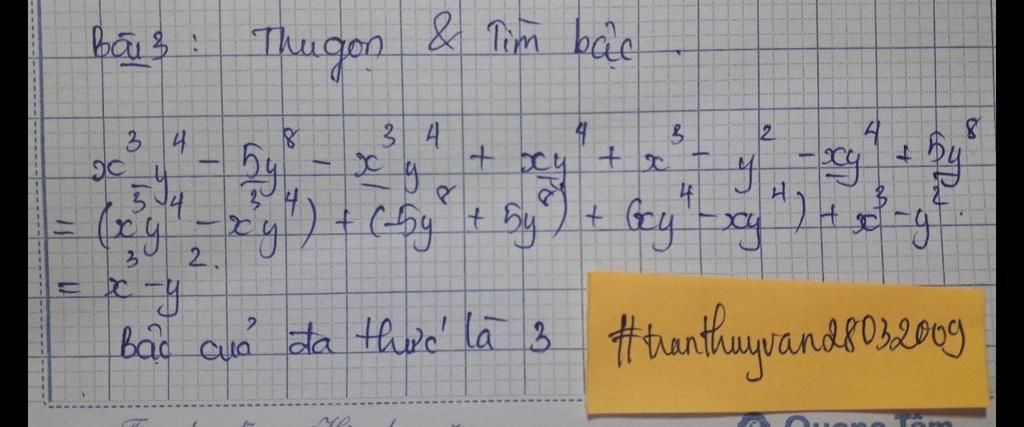 Bài 3 : Thu gọn & Tìm bậc.
x³y⁴ - 5y⁸ - x³y⁴ + xy⁴ + x³ - y² - xy⁴ + 5y⁸
= (x³y⁴ - x³y⁴) + (-5y⁸ + 5y⁸) + (xy⁴ - xy⁴) + x³ - y².
= x³ - y².
Bậc của đa thức là 3
#tranthuyvan28032009
Quang Tâm